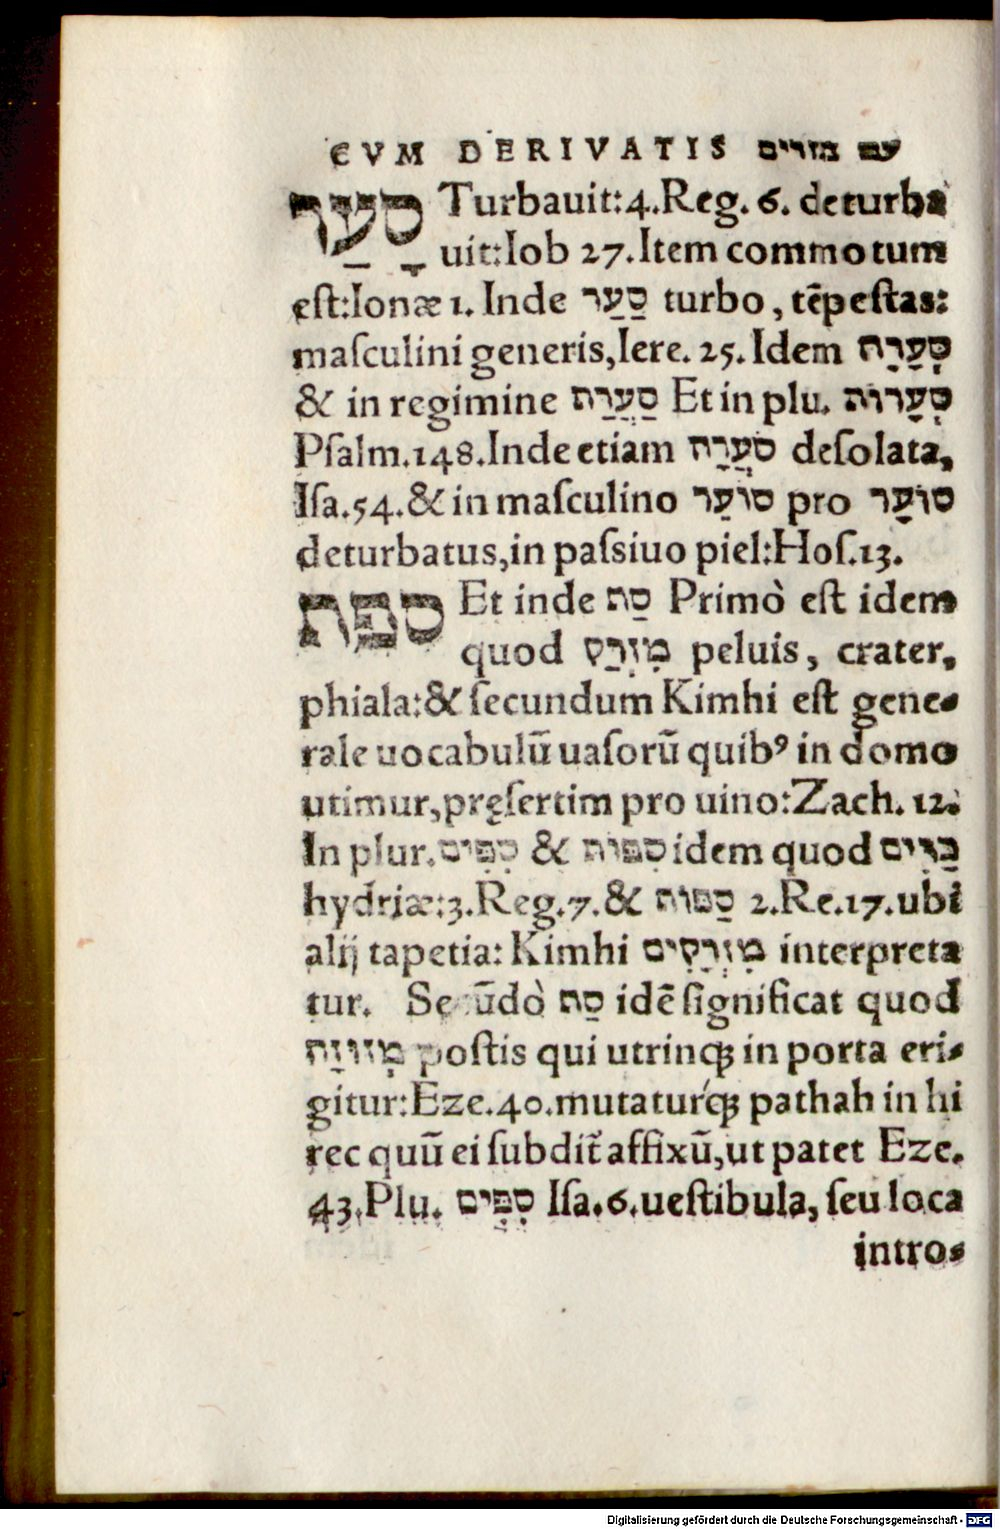 CVM DERIVATIS עם גזרים
סָעַר Turbauit:4.Reg.6. deturba
uit:Iob 27.Item commotum
est:Ionæ 1. Inde סַעַר turbo, tēpestas:
masculini generis,Iere. 25. Idem סְעָרָה
& in regimine סַעֲרַת Et in plu. סְעָרוֹת
Psalm.148.Inde etiam סֹעֲרָה desolata,
Isa.54.& in masculino סוֹעַר pro סוֹעָר
deturbatus,in passiuo piel:Hos.13.
ספף Et inde סַף Primò est idem
quod מִזְרָק peluis, crater,
phiala:& secundum Kimhi est gene-
rale uocabulū uasorū quibꝰ in domo
utimur,pręsertim pro uino:Zach. 12.
In plur.סִפִּים & סִפּוֹת idem quod כַּדִּים
hydriæ:3.Reg.7.& סַפּוֹת 2.Re.17.ubi
alij tapetia: Kimhi מִזְרָקִים interpreta
tur. Secūdò סַף idē significat quod
מְזוּזָה postis qui utrinqꝫ in porta eri-
gitur:Eze.40.mutaturqꝫ pathah in hi
rec quū ei subdit̃ affixū,ut patet Eze.
43.Plu. סִפִּים Isa.6.uestibula, seu loca
intro-
Digitalisierung gefördert durch die Deutsche Forschungsgemeinschaft - DFG